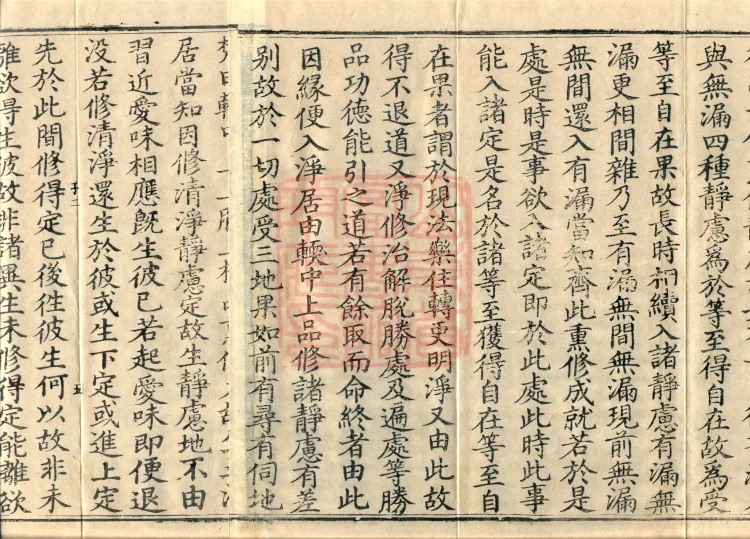 與無漏四種靜慮爲於等至得自在故爲受
等至自在果故長時相續入諸靜慮有漏無
漏更相間雜乃至有漏無間無漏現前無漏
無間還入有漏當知齊此熏修成就若於是
處是時是事欲入諸定即於此處此時此事
能入諸定是名於諸等至獲得自在等至自
在果者謂於現法樂住轉更明淨又由此故
得不退道又淨修治解脫勝處及遍處等勝
品功德能引之道若有餘取而命終者由此
因緣便入淨居由軟中上品修諸靜慮有差
別故於一切處受三地果如前有尋有伺地
居當知因修清淨靜慮定故生靜慮地不由
習近愛味相應既生彼已若起愛味即便退
没若修清淨還生於彼或生下定或進上定
先於此間修得定已後往彼生何以故非未
離欲得生彼故非諸異生未修得定能離欲